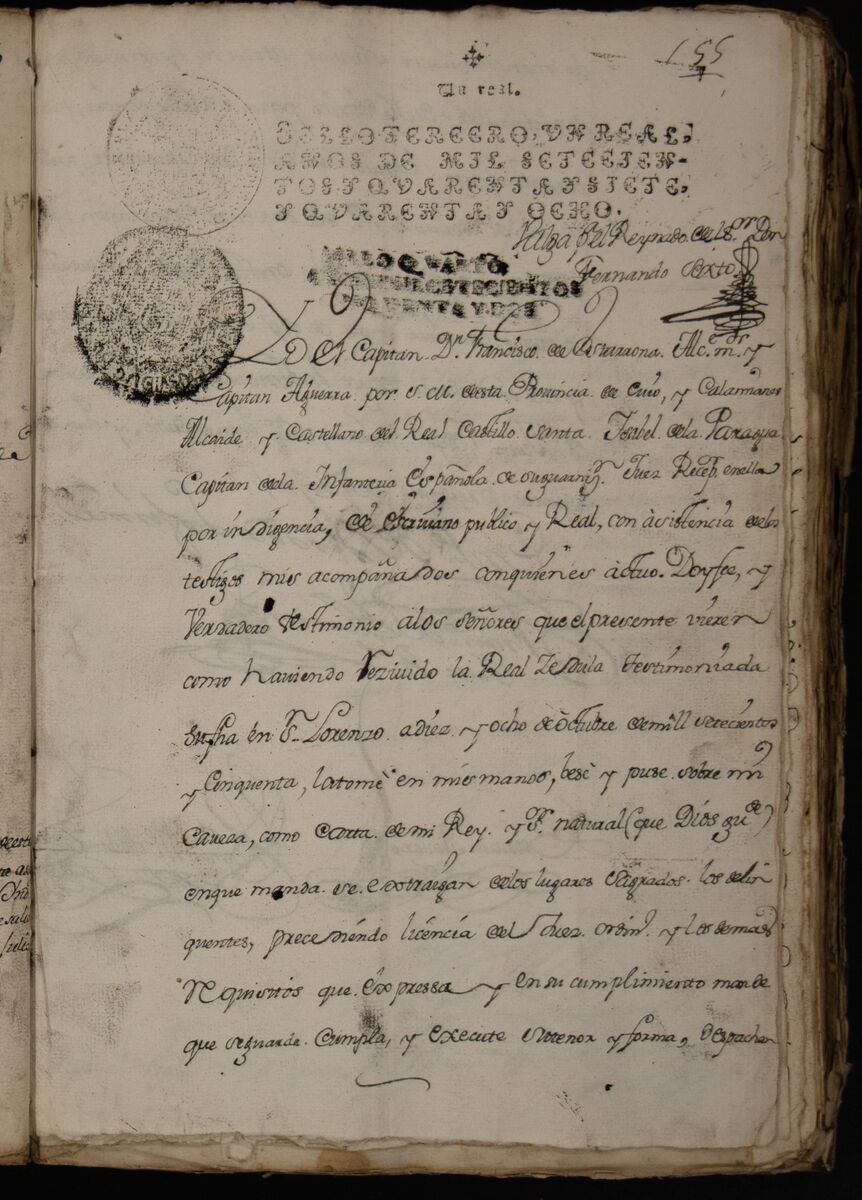 155
Un real.
SELLO TERCERO, VN REAL,
AÑOS DE MIL SETECIEN-
TOS Y QVARENTA Y SIETE,
Y QVARENTA Y OCHO.
Valga pel Reynado del Sor. Don
Fernando Sexto
SELLO QVARTO,
SETECIENTOS
YDOS
YO El Capitan Dn. Francisco de Alce. mor. y
Capitan Aguerra por S. M. desta Provincia de Cuio, y Calamianes
Alcaide y Castellano del Real Castillo Santa Isabel dela Paragua
Capitan dela Infanteria Española de suguarnizn. Juez Recepr. enella
por indigencia, de escriuano publico y Real, con àsistencia delos
testigos mis acompañados conquienes àctuo. Doyfee, y
Verdadero testimonio alos señores que elpresente vieren
como haviendo rezivido la Real Zedula testimoniada
sufha en Sn. Lorenzo adiez y ocho de òctubre demill setecientos
y Cinquenta, latomè en mismanos, besè y puse sobre mi
Caveza, como Carta demi Rey y Sr. natural (que Dios gude)
enque manda se extraigan delos lugares sagrados los delin
quentes, precediendo licencia del Juez ordino. y los demas
requisitos que expressa y ensu cumplimiento mande
que seguarde Cumpla, y execute sutenor y forma, despachan